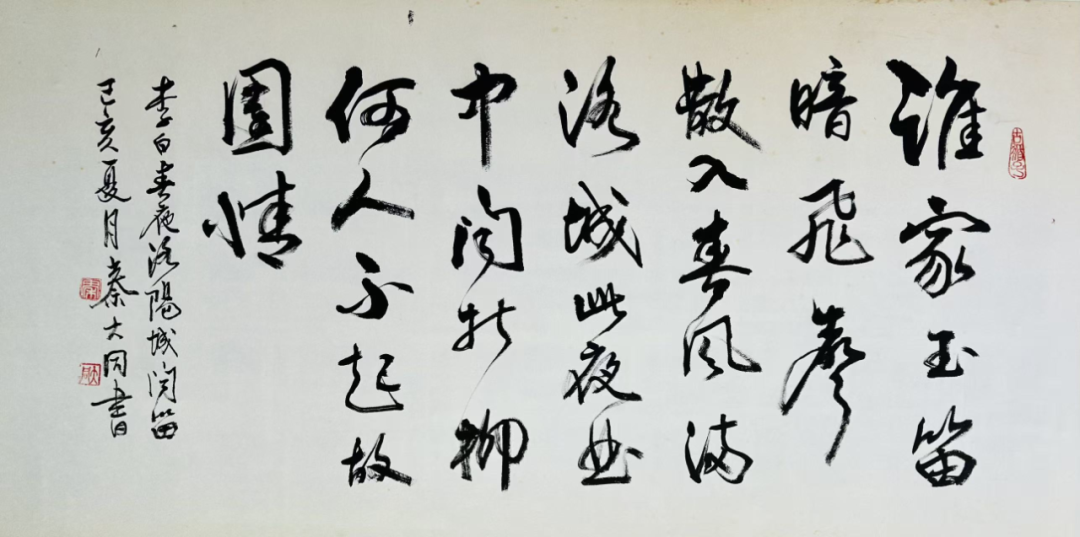 誰家玉笛
暗飛聲
散入春風滿
洛城此夜曲
中聞折柳
何人不起故
園情
李白春夜洛陽城聞笛
己亥夏月秦大同書